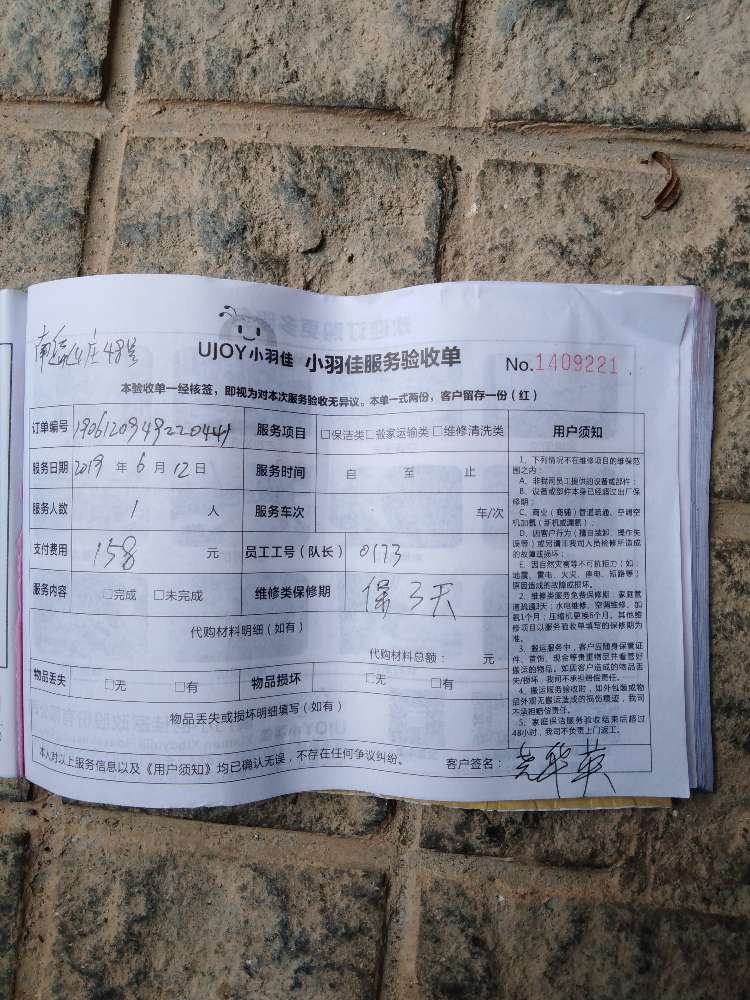 48号
UJOY小羽佳 小羽佳服务验收单 No.1409221
本验收单一经核签，即视为对本次服务验收无异议。本单一式两份，客户留存一份（红）
订单编号 190612094922044 服务项目 □保洁类□搬家运输类□维修清洗类 用户须知
服务日期 2019 年 6 月 12 日 服务时间 自 至 止
服务人数 1 人 服务车次 车/次
支付费用 158 元 员工工号（队长） 0173
服务内容 □完成 □未完成 维修类保修期 保3天
代购材料明细（如有）
代购材料总额： 元
物品丢失 □无 □有 物品损坏 □无 □有
物品丢失或损坏明细填写（如有）
本人对以上服务信息以及《用户须知》均已确认无误，不存在任何争议纠纷。 客户签名： 华英
1、下列情况不在维修项目的维保范
围之内：
A、非我司员工提供的设备或部件；
B、设备或部件本身已经超过出厂保
修期；
C、商业（商铺）管道疏通、空调空
机加氨（新机或漏氨）；
D、因客户行为（擅自装卸、操作失
误等）或另请非我司人员检修所造成
的故障或损坏；
E、因自然灾害等不可抗拒力（如：
地震、雷电、火灾、停电、短路等）
原因造成的故障或损坏。
2、维修类服务免费保修期：家庭管
道疏通3天；水电维修、空调维修、加
氨1个月；压缩机更换6个月。其他维
修项目以服务验收单填写的保修期为
准。
3、搬运服务中，客户应随身保管证
件、首饰、现金等贵重物品并看管好
搬运的物品。如因客户造成的物品丢
失/损坏，我司不承担赔偿责任。
4、搬运服务验收时，如外包装或物
品外观无搬运造成的损伤痕迹，我司
不承担赔偿责任。
5、家庭保洁服务验收结束后超过
48小时，我司不负责上门返工。